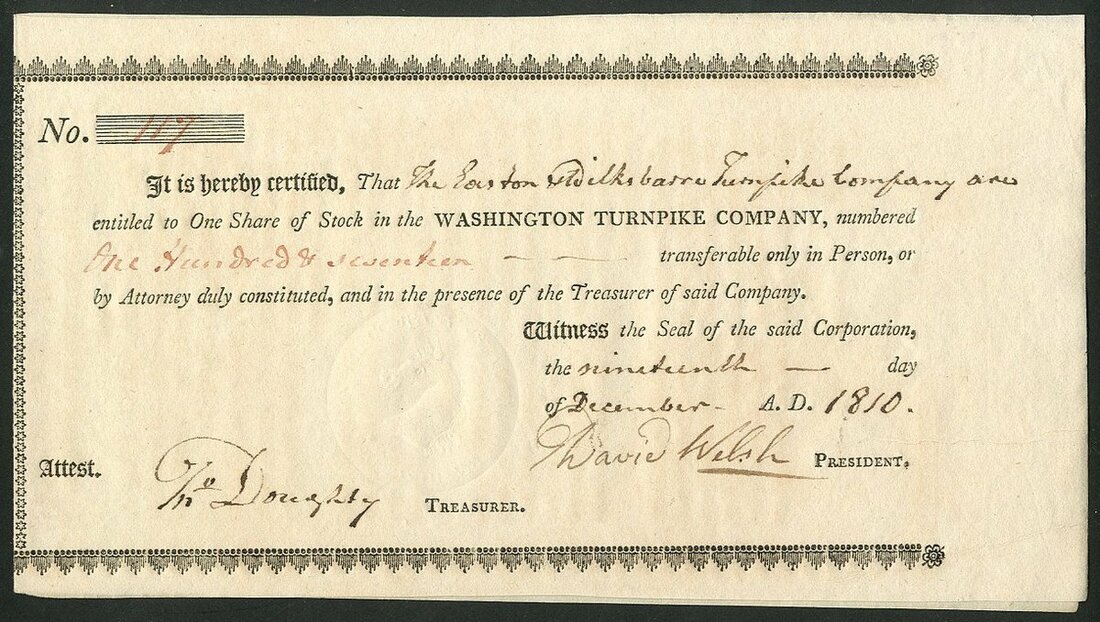 No. 117
It is hereby certified, That The Easton & Wilksbarre Turnpike Company are
entitled to One Share of Stock in the WASHINGTON TURNPIKE COMPANY, numbered
One Hundred & seventeen — — transferable only in Person, or
by Attorney duly constituted, and in the presence of the Treasurer of said Company.
Witness the Seal of the said Corporation,
the nineteenth — day
of December - A. D. 1810.
David Welsh PRESIDENT.
Attest.
Tho Doughty TREASURER.